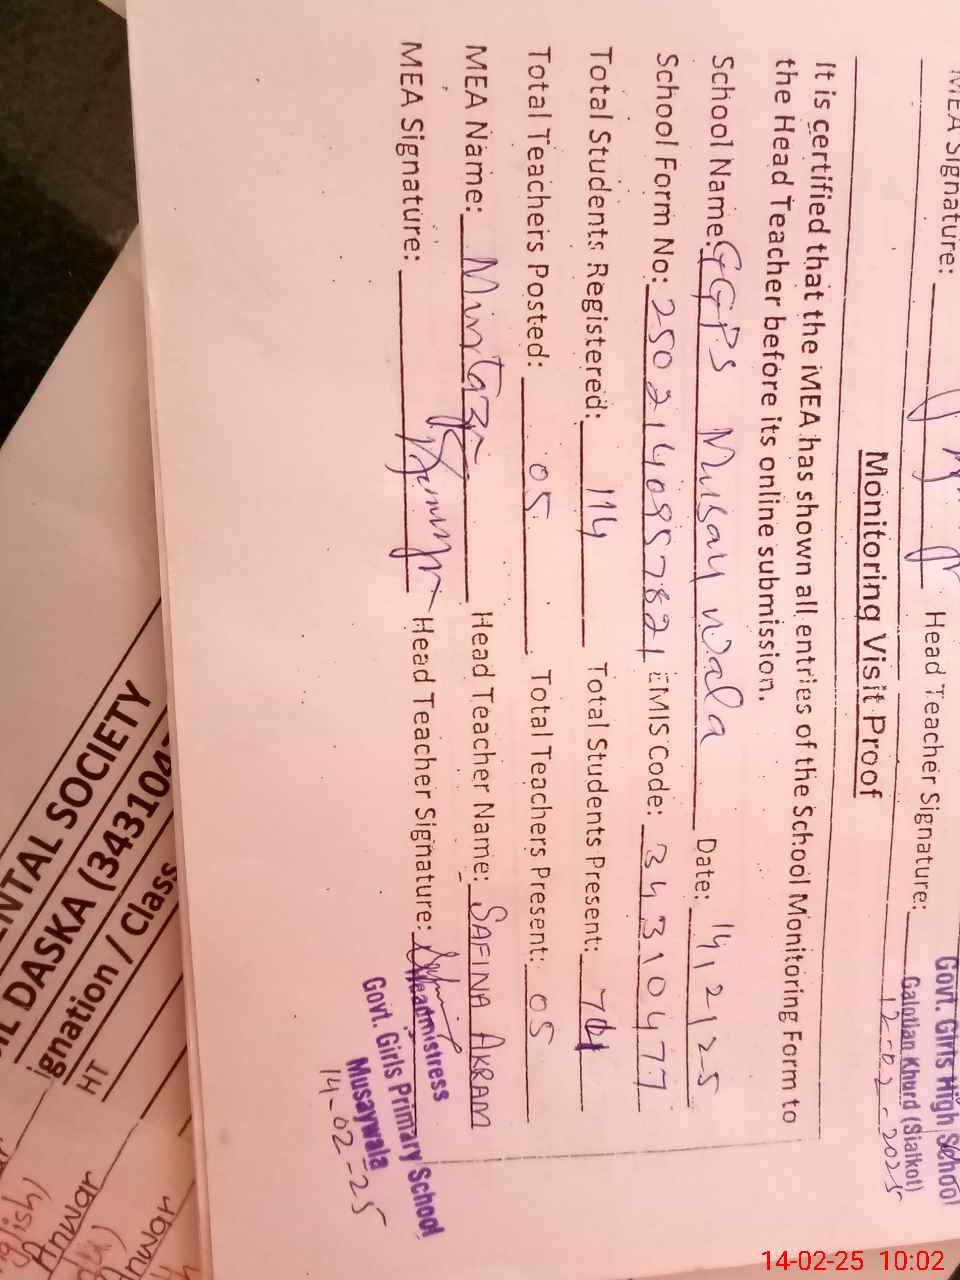 MEA Signature: Head Teacher Signature:
Govt. Girls High School
Galotian Khurd (Sialkot)
12-02-2025
Monitoring Visit Proof
It is certified that the MEA has shown all entries of the School Monitoring Form to
the Head Teacher before its online submission.
School Name: GGPS Musay wala Date: 14/2/25
School Form No: 2502140957821 EMIS Code: 34310477
Total Students Registered: 114 Total Students Present:
Total Teachers Posted: 05 Total Teachers Present: 05
MEA Name: Mumtaz Head Teacher Name: SAFINA AKRAM
MEA Signature: Head Teacher Signature:
Headmistress
Govt. Girls Primary School
Musaywala
14-02-25
ENTAL SOCIETY
DASKA (343104
ignation / Class
HT
Anwar
Anwar
14-02-25 10:02